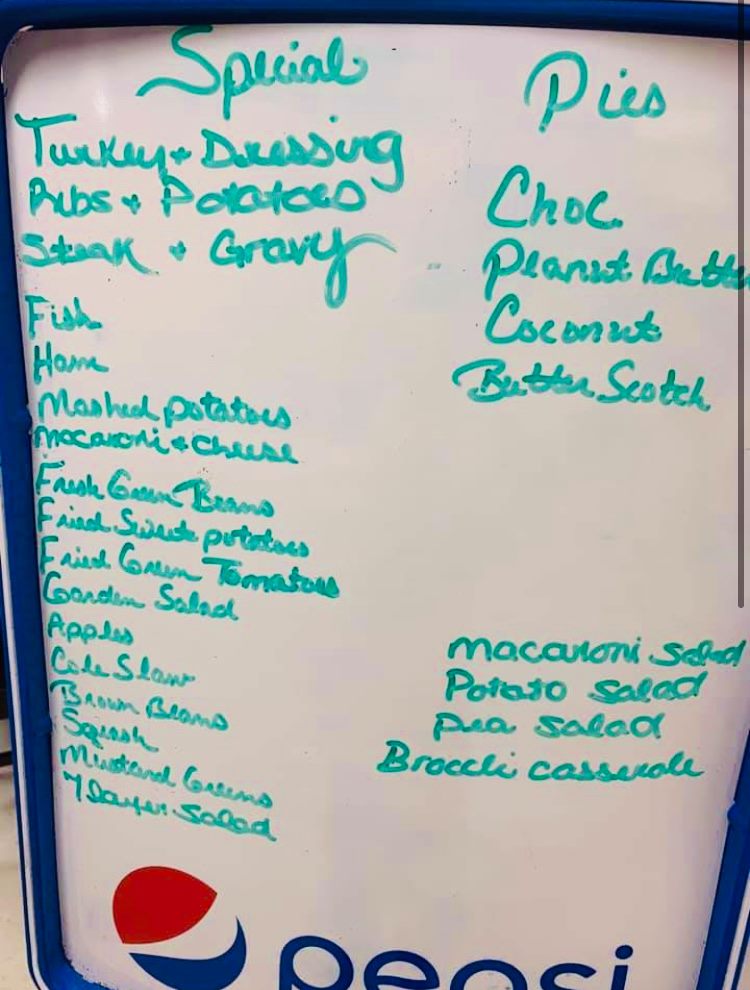 Special
Turkey + Dressing
Ribs + Potatoes
Steak + Gravy
Fish
Ham
Mashed potatoes
macaroni + cheese
Fresh Green Beans
Fried Sweet potatoes
Fried Green Tomatoes
Garden Salad
Apples
Cole Slaw
Brown Beans
Squash
Mustard Greens
7 layer salad
Pies
Choc.
Peanut Butter
Coconut
Butter Scotch
macaroni salad
Potato salad
pea salad
Broccli casserole
pepsi